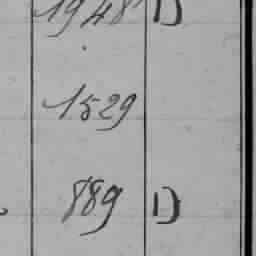 1948 1)
1529
889 1)